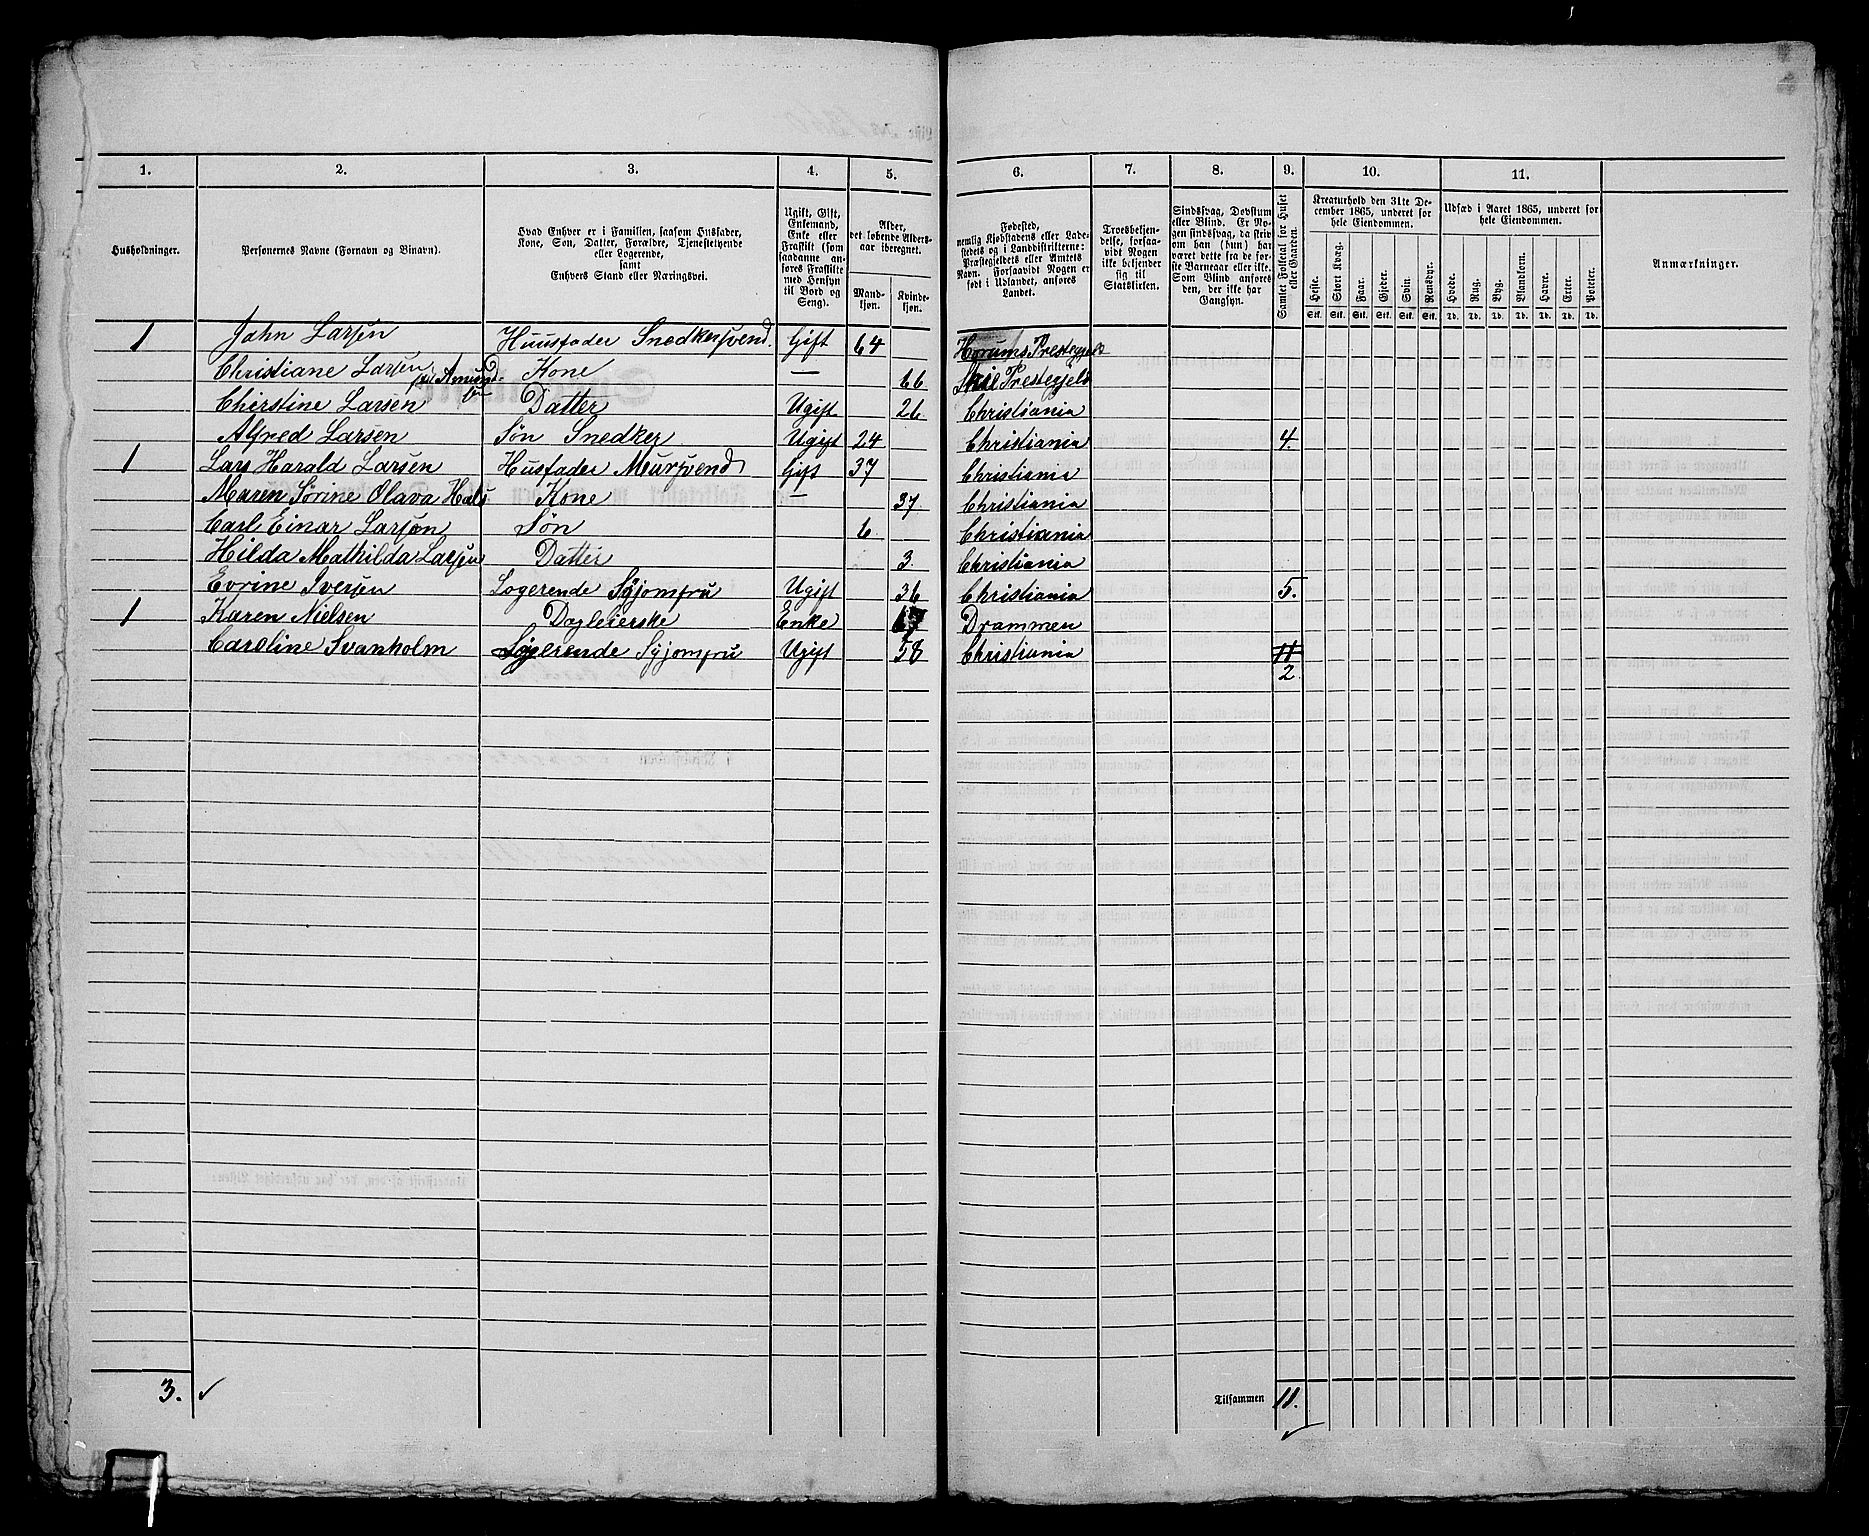 1. 2. 3. 4. 5. 6. 7. 8. 9. 10. 11.
Husholdninger.
Personernes Navne (Fornavn og Binavn).
Hvad Enhver er i Familien, saasom Husfader,
Kone, Søn, Datter, Forældre, Tjenestetyende
eller Logerende,
samt
Enhvers Stand eller Næringsvei.
Ugift, Gift,
Enkemand,
Enke eller
Fraskilt (som
saadanne an-
føres Fraskilte
med Hensyn
til Bord og
Seng).
Alder,
det løbende Alders-
aar iberegnet.
Mand-
kjøn.
Kvinde-
kjøn.
Fødested,
nemlig Kjøbstadens eller Lade-
stedets og i Landdistrikterne:
Præstegjeldets eller Amtets
Navn. Forsaavidt Nogen er
født i Udlandet, anføres
Landet.
Troesbekjen-
delse, forsaa-
vidt Nogen
ikke bekjender
sig til
Statskirken.
Sindssvag, Døvstum
eller Blind. Er No-
gen sindssvag, da skriv
om han (hun) har
været dette fra de før-
ste Barneaar eller ikke.
Som Blind anføres
den, der ikke har
Gangsyn.
Samlet Folketal for Huset
eller Gaarden.
Kreaturhold den 31te De-
cember 1865, underet for
hele Eiendommen.
Heste. Stort Kvæg. Faar. Gjeder. Svin. Rensdyr.
Stk. Stk. Stk. Stk. Stk. Stk.
Udsæd i Aaret 1865, underet for
hele Eiendommen.
Hvede. Rug. Byg. Blandkorn. Havre. Erter. Poteter.
Td. Td. Td. Td. Td. Td. Td.
Anmærkninger.
1 John Larsen Huusfader Snedkersvend. Gift 64 Prestegjeld
Christiane Larsen Kone — 66 Prestegjeld
Christine Larsen Datter Ugift 26 Christiania
Alfred Larsen Søn Snedker Ugift 24 Christiania 4.
1 Lars Harald Larsen Husfader Muursvend Gift 37 Christiania
Maren Sørine Olava Hals. Kone — 37. Christiania
Carl Einar Larsen Søn 6. Christiania
Hilda Mathilda Larsen Datter 3. Christiania
Evrine Iversen Logerende Syjomfru Ugift 36 Christiania 5.
1 Karen Nielsen Dagleierske Enke Drammen
Caroline Svanholm Logerende Syjomfru Ugift 58 Christiania 11
2
3.
Tilsammen 11.